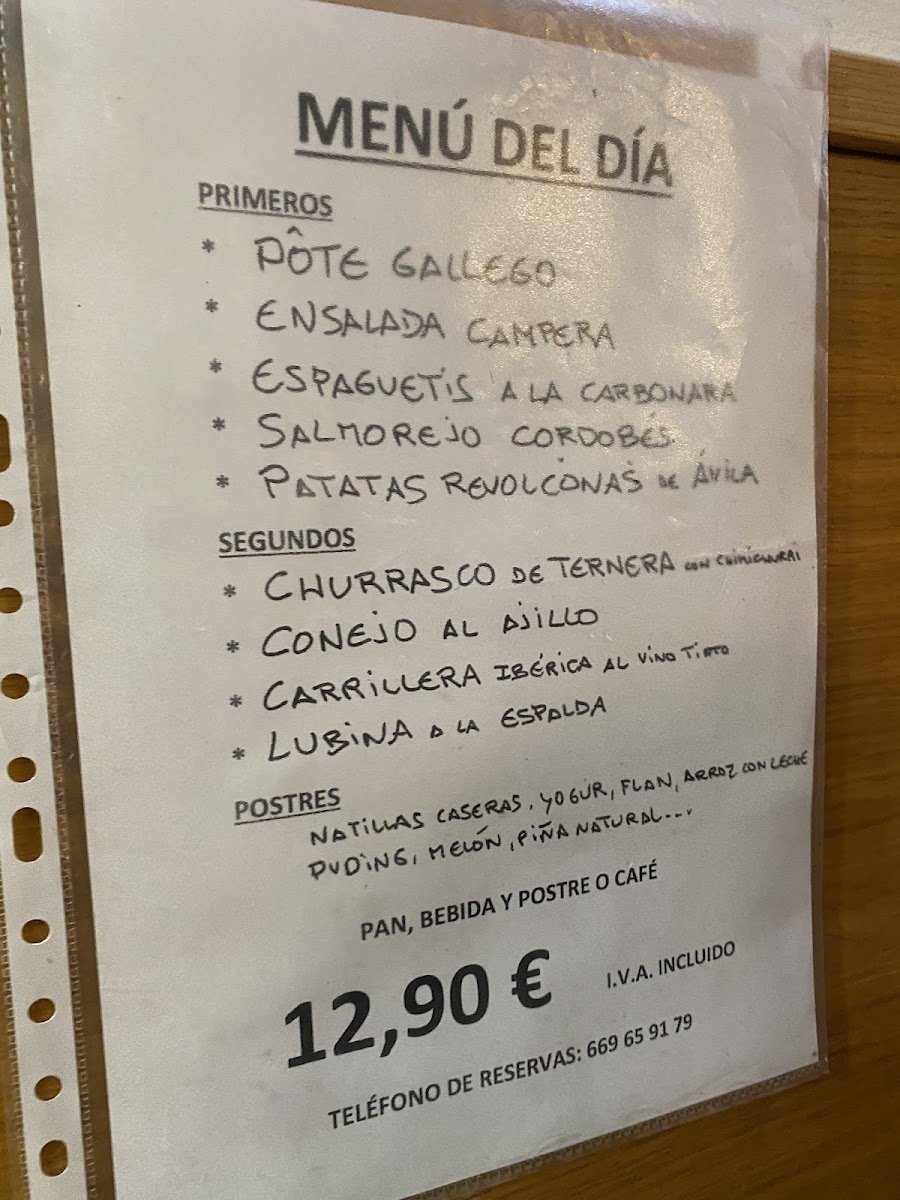 MENÚ DEL DÍA
PRIMEROS
* PÔTE GALLEGO
* ENSALADA CAMPERA
* ESPAGUETIS A LA CARBONARA
* SALMOREJO CORDOBÉS
* PATATAS REVOLCONAS DE ÁVILA
SEGUNDOS
* CHURRASCO DE TERNERA CON CHIMICHURRI
* CONEJO AL AJILLO
* CARRILLERA IBÉRICA AL VINO TINTO
* LUBINA A LA ESPALDA
POSTRES
NATILLAS CASERAS, YOGUR, FLAN, ARROZ CON LECHE
PUDING, MELÓN, PIÑA NATURAL...
PAN, BEBIDA Y POSTRE O CAFÉ
12,90 € I.V.A. INCLUIDO
TELÉFONO DE RESERVAS: 669 65 91 79